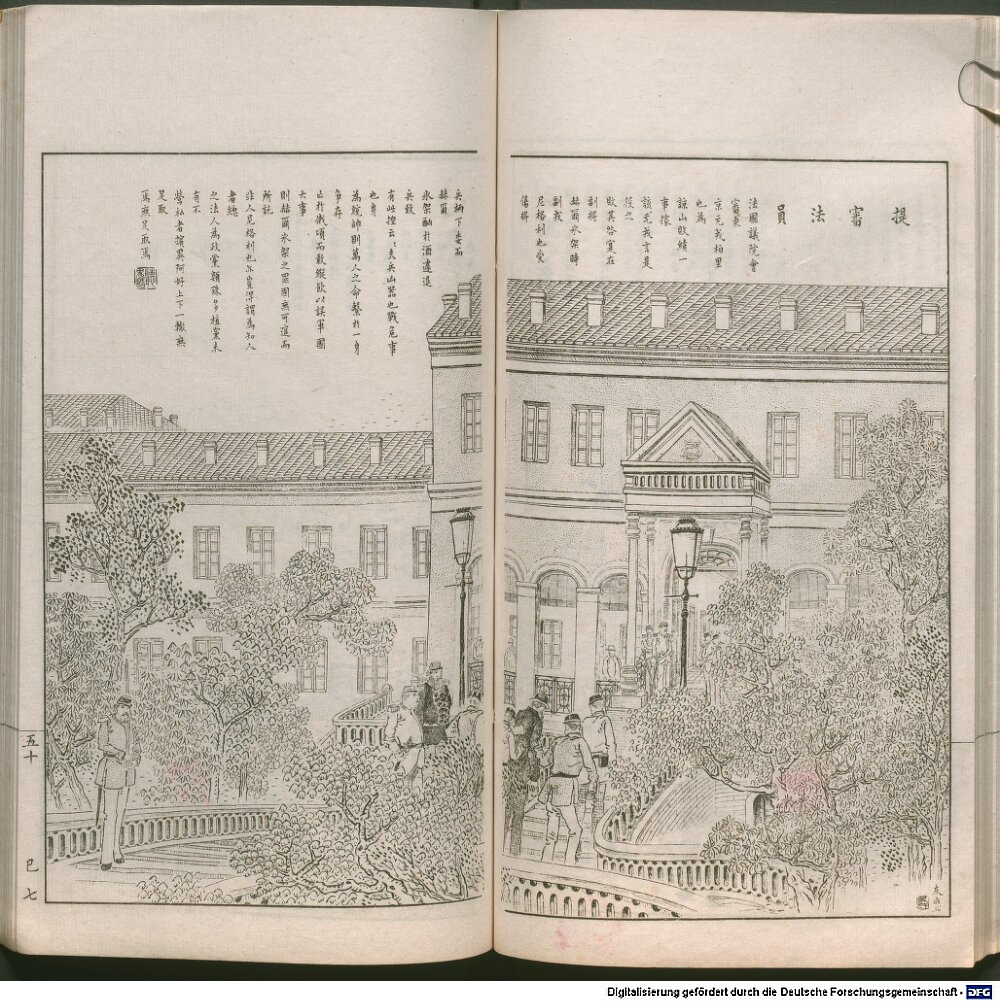 提審法員
法國議院會
審東
京元戎柏里
也為
諒山敗績一
事據
該元戎言是
役之
敗其咎實在
副將
赫爾氷架時
副戎
尼格利也受
傷將
兵柄下委而
赫爾
氷架酗於酒遽退
兵致
有此挫云々夫兵凶器也戰危事
也身
為統帥則萬人之命繫於一身
爭存
亡於俄頃而敢縱飲以誤軍國
大事
則赫爾氷架之罪固無可逭而
所託
非人尼格利也亦豈得謂為知人
者總
之法人為政黨類殊多植黨未
有不
營私者擯異阿好上下一轍無
足取
焉無足取焉
五十
巳七
Digitalisierung gefördert durch die Deutsche Forschungsgemeinschaft - DFG